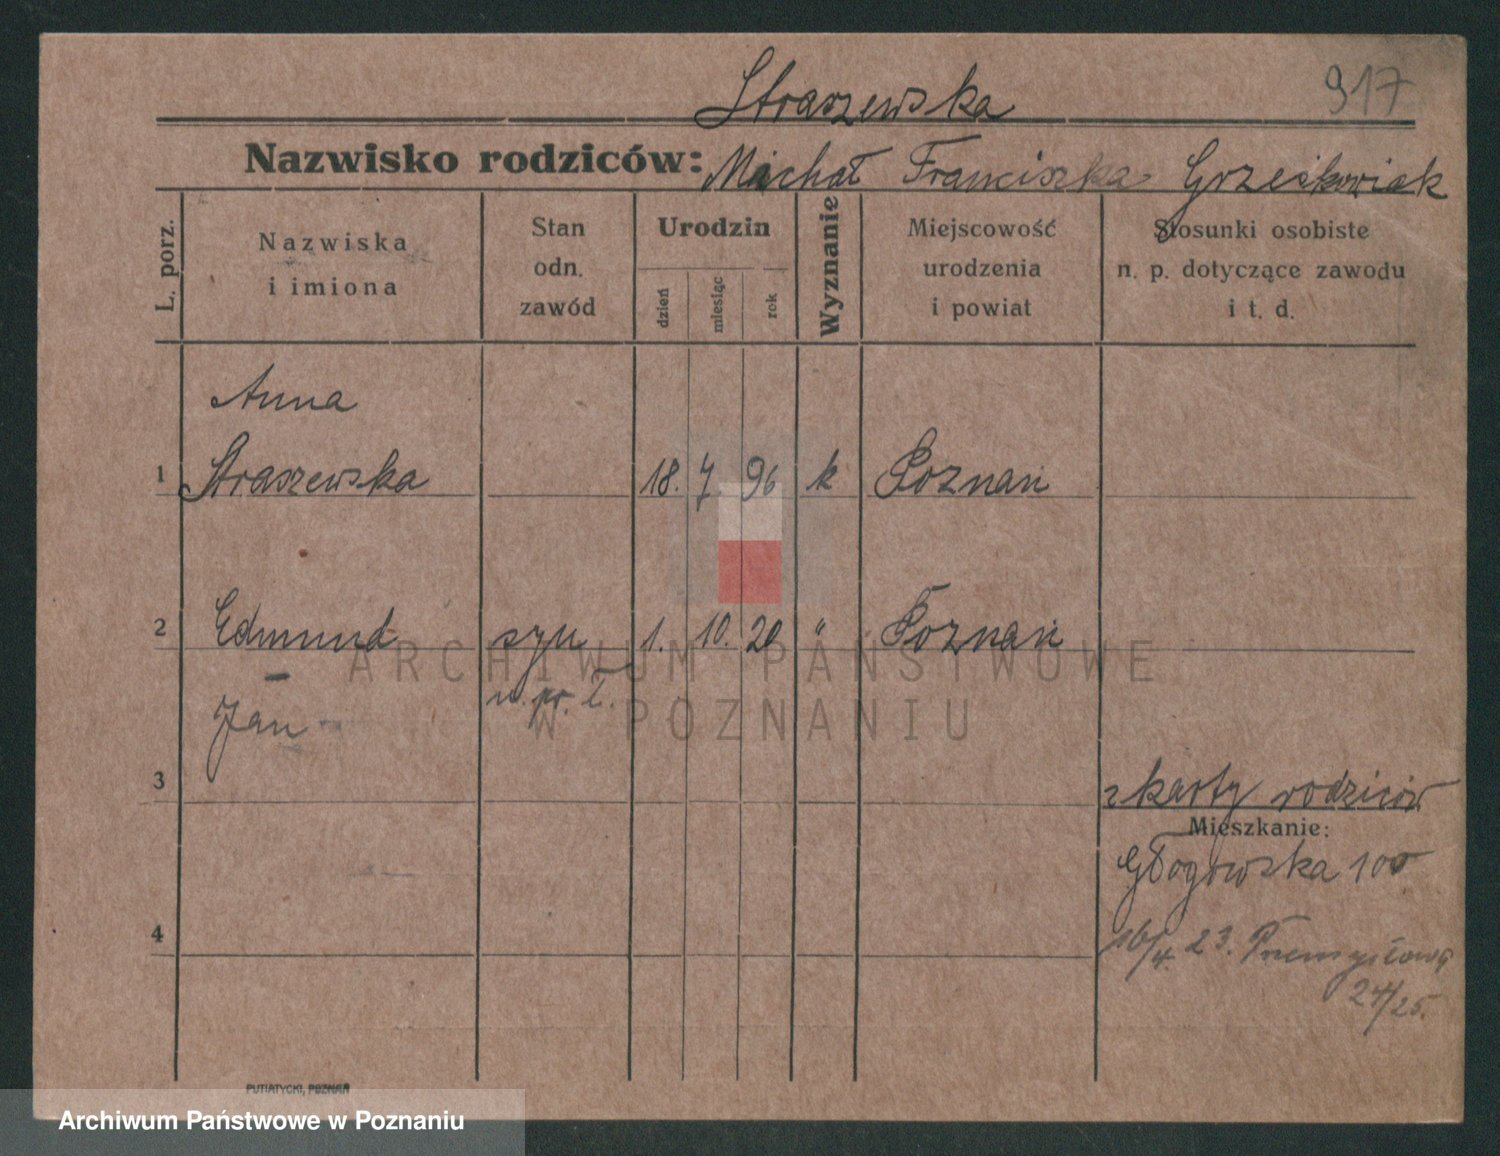 Straszewska
917
Nazwisko rodziców: Michał Franciszka Grześkowiak
L. porz.
Nazwiska
i imiona
Stan
odn.
zawód
Urodzin
dzień
miesiąc
rok
Wyznanie
Miejscowość
urodzenia
i powiat
Stosunki osobiste
n. p. dotyczące zawodu
i t. d.
Anna
1 Straszewska 18. 7. 96 k Poznań
2 Edmund syn 1. 10. 20 " Poznań
n. pr. ł.
Jan
3
z karty rodziców
Mieszkanie:
Głogowska 100
4
16/4. 23. Przemysłowa
24/25.
ARCHIWUM PAŃSTWOWE
W POZNANIU
PUTIATYCKI, POZNAŃ
Archiwum Państwowe w Poznaniu